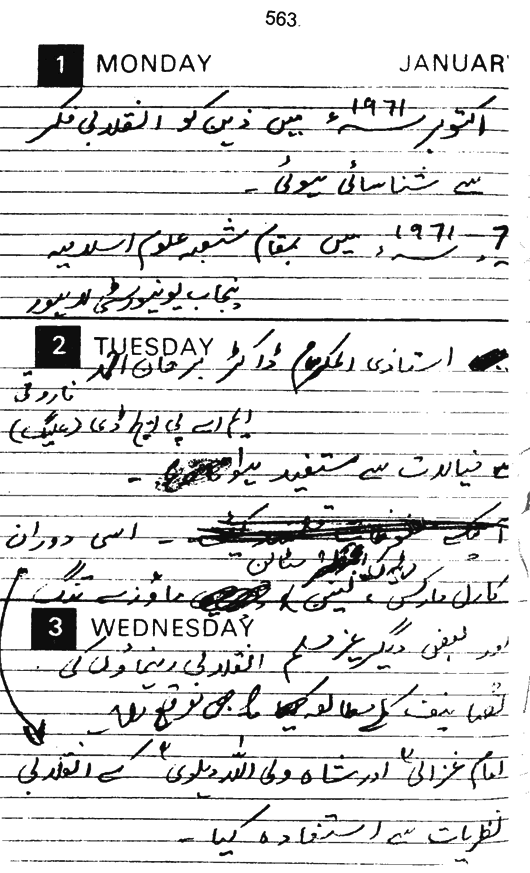 563.
1 MONDAY JANUAR
اکتوبر 1971ء میں ذہن کو انقلابی فکر
سے شناسائی ہوئی -
7ء - 1971ء میں بمقام شعبہ علوم اسلامیہ
پنجاب یونیورسٹی لاہور
2 TUESDAY
استاذی المکرم ڈاکٹر برھان احمد
فاروقی
ایم اے پی ایچ ڈی (علیگ)
کے خیالات سے مستفید ہوا -
- اسی دوران
سٹالن
کارل مارکس، لینن، ماؤزے تنگ
3 WEDNESDAY
اور بعض دیگر غیر مسلم انقلابی رہنماؤں کی
تصانیف کے مطالعہ کا بھی موقع ملا
امام غزالیؒ اور شاہ ولی اللہ دہلویؒ کے انقلابی
نظریات سے استفادہ کیا -